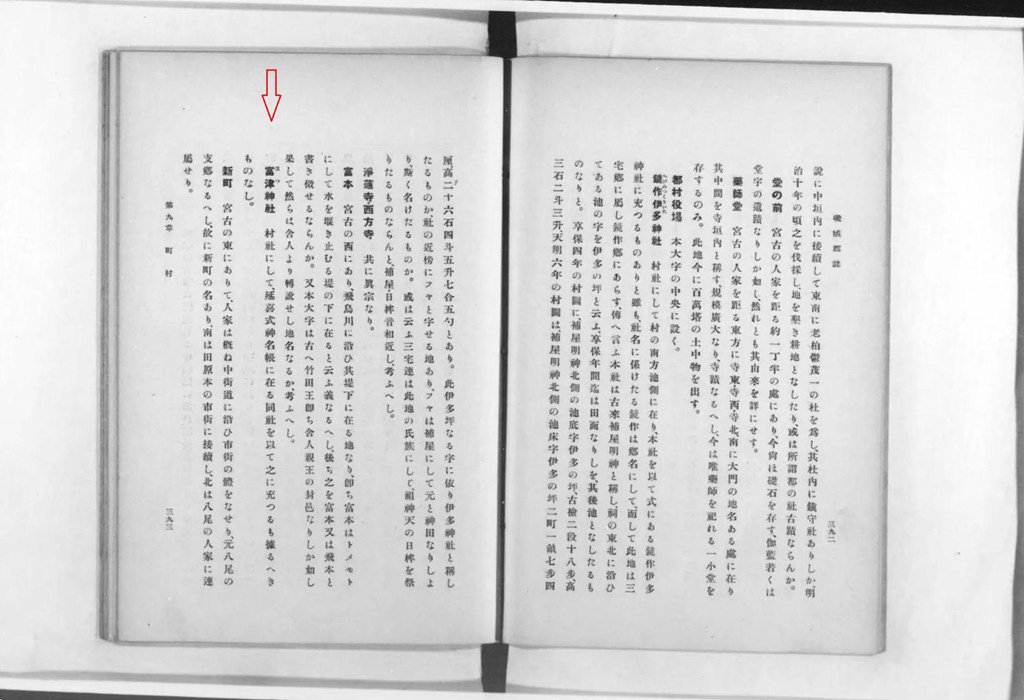 磯城郡誌
三九二
說に中垣内に接續して東南に老柏鬱茂一の杜を爲し、其杜内に鎮守社ありしか、明
治十年の頃之を伐採し、地を墾き耕地となしたり、或は所謂都の社古蹟ならんか。
堂の前 宮古の人家を距る約一丁半の處にあり、今尙は礎石を存す、伽藍若くは
堂字の遺蹟なりしか如し、然れとも其由來を詳にせす。
藥師堂 宮古の人家を距る東方に寺東寺西寺北、南に大門の地名ある處に在り
其中間を寺垣内と稱す、規模廣大なり、寺蹟なるへし、今は唯藥師を祀れる一小堂を
存するのみ。此地今に百萬塔の土中物を出す。
都村役場 本大字の中央に設く。
鏡作伊多神社 村社にして村の南方池側に在り、本社を以て式にある鏡作伊多
神社に充つるものありと雖も、社名に係けたる鏡作は鄕名にして、而して此地は三
宅鄕に屬し鏡作鄕にあらす、傳へ言ふ本社は古來補屋明神と稱し、祠の東北に沿ひ
てある池の字を伊多の坪と云ふ、享保年間迄は田面なりしを、其後池となしたるも
のなりと。享保四年の村圖に、補屋明神北側の池底字伊多の坪、古檢二段十八步、高
三石二斗三升、天明六年の村圖は、補屋明神北側の池床字伊多の坪二町一畝七步四
厘、高二十六石四斗五升七合五勺とあり。此伊多坪なる字に依り伊多神社と稱し
たるものか、社の近傍にフヤと字せる地あり、フヤは補屋にして元と神田なりしよ
り、斯く名けたるものか。或は云ふ三宅連は此地の氏族にして、祖神天の日桙を祭
りたるものならんと、補屋・日桙音相近し、考ふへし。
淨蓮寺西方寺 共に眞宗なり。
富本 宮古の西にあり、飛鳥川に沿ひ其堤下に在る地なり、卽ち富本はトメモト
にして水を堰き止むる堤の下に在ると云ふ義なるへし、後ち之を富本又は飛本と
書き做せるならんか。又本大字は古へ竹田王卽ち舍人親王の封邑なりしか如し
果して然らは舍人より轉訛せし地名なるか、考ふへし。
富津神社 村社にして、延喜式神名帳に在る同社を以て之に充つるも據るへき
ものなし。
新町 宮古の東にありて、人家は概ね中街道に沿ひ市街の體をなせり、元八尾の
支鄕なるへし、故に新町の名あり、南は田原本の市街に接續し、北は八尾の人家に連
屬せり。
第九章 町村
三九三